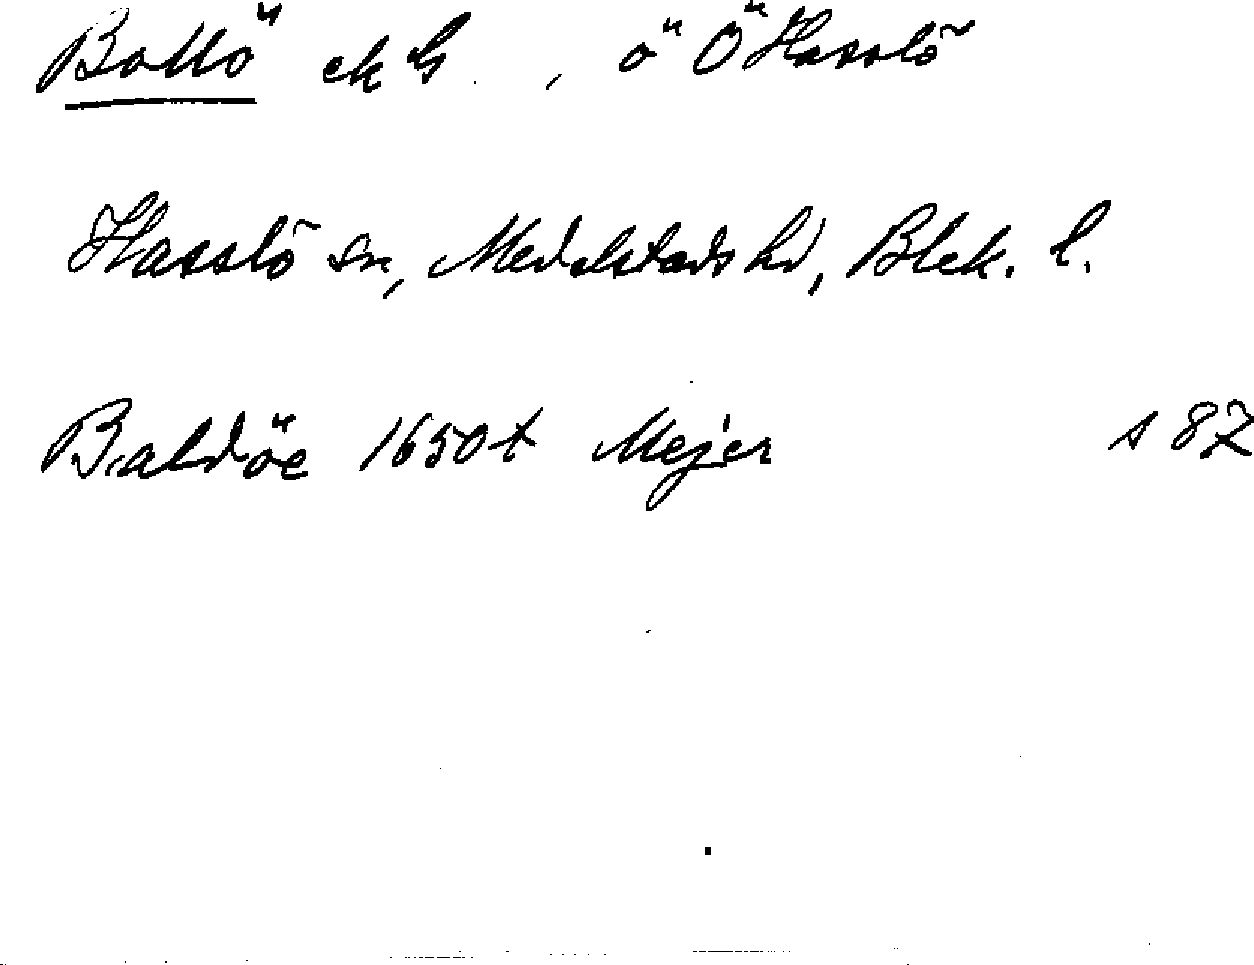 Bollö ek G , ö Ö Hasslö
Hasslö sn, Medelstads hd, Blek. l.
Baldöe 1650t Mejer s 87